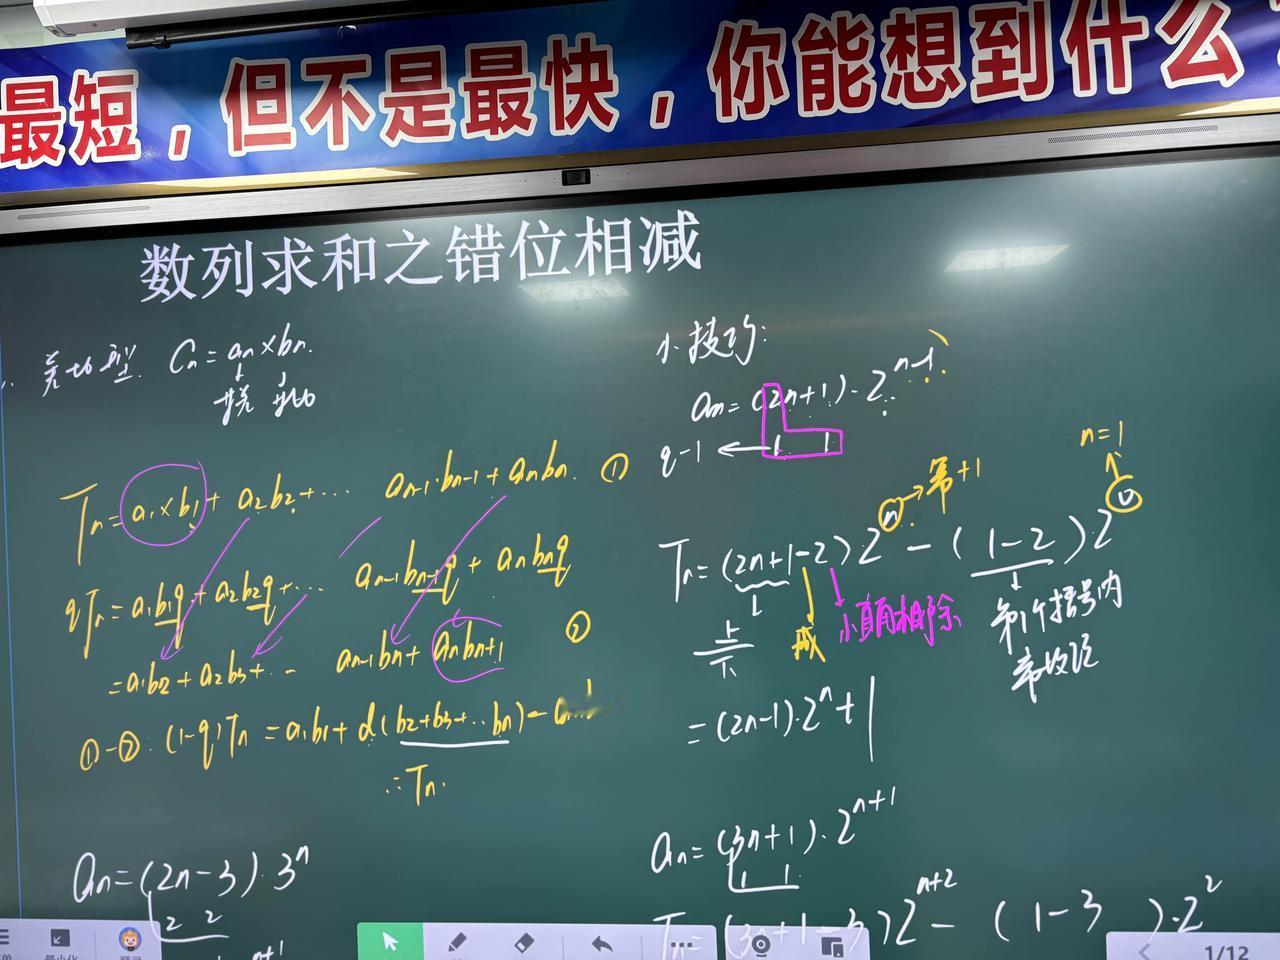 最短，但不是最快，你能想到什么
数列求和之错位相减
差比型. Cn = an × bn.
等差 等比
Tn = a1 × b1 + a2b2 + ... an-1·bn-1 + anbn. ①
qTn = a1b1q + a2b2q + ... an-1bn-1q + anbnq
= a1b2 + a2b3 + ... an-1bn + anbn+1 ②
①-②: (1-q)Tn = a1b1 + d(b2+b3+...bn) -
∴Tn.
an = (2n-3)·3^n
2 2
n+1
小技巧:
an = (2n+1)·2^{n-1}
q-1 ← 1 1
n=1
幂+1
Tn = (2n+1-2)2^n - (1-2)2^0
上/下 减 小直角相除 第一个括号内
常数项
= (2n-1)·2^n + 1
an = (3n+1)·2^{n+1}
1 1
Tn = (3n+1-3)2^{n+2} - (1-3 )·2^2
最小化
1/12